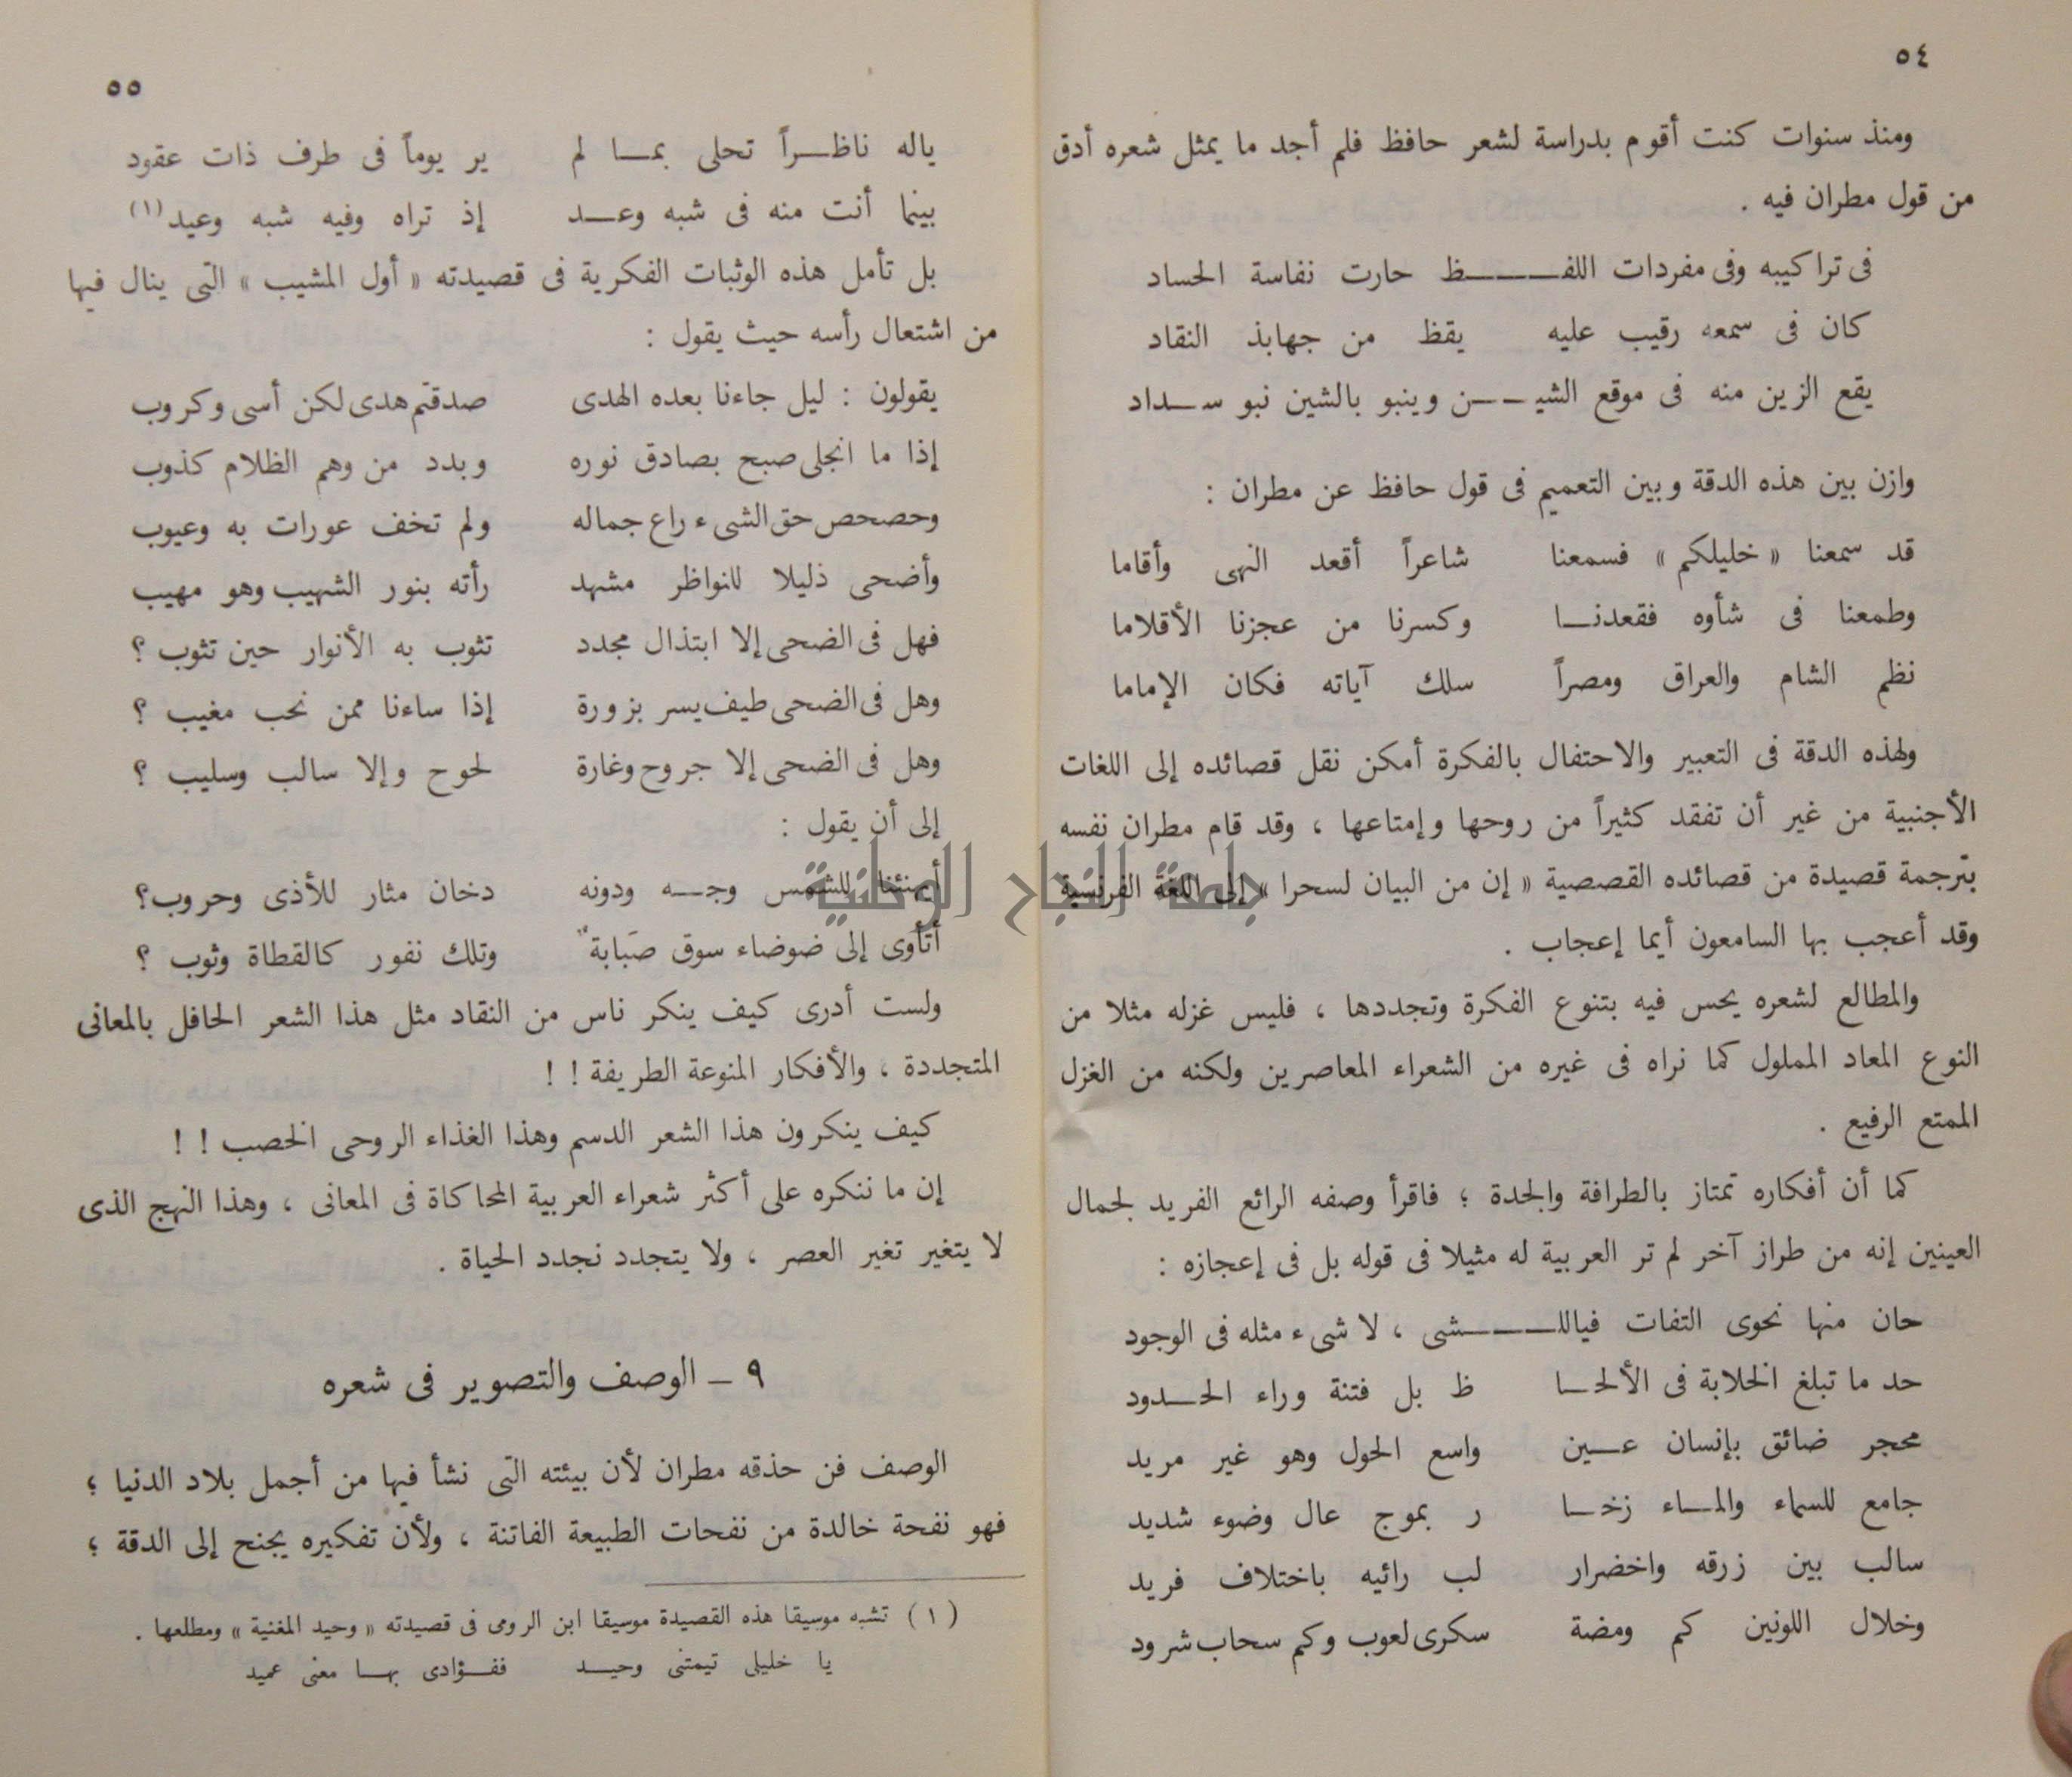 ٥٤
ومنذ سنوات كنت أقوم بدراسة لشعر حافظ فلم أجد ما يمثل شعره أدق
من قول مطران فيه .
فى تراكيبه وفى مفردات اللفـــــظ حارت نفاسة الحساد
كان فى سمعه رقيب عليه يقظ من جهابذ النقاد
يقع الزين منه فى موقع الشيـــن وينبو بالشين نبو ســداد
وازن بين هذه الدقة وبين التعميم فى قول حافظ عن مطران :
قد سمعنا « خليلكم » فسمعنا شاعراً أقعد النهى وأقاما
وطمعنا فى شأوه فقعدنــا وكسرنا من عجزنا الأقلاما
نظم الشام والعراق ومصراً سلك آياته فكان الإماما
ولهذه الدقة فى التعبير والاحتفال بالفكرة أمكن نقل قصائده إلى اللغات
الأجنبية من غير أن تفقد كثيراً من روحها وإمتاعها ، وقد قام مطران نفسه
بترجمة قصيدة من قصائده القصصية « إن من البيان لسحرا » إلى اللغة الفرنسية
وقد أعجب بها السامعون أيما إعجاب .
والمطالع لشعره يحس فيه بتنوع الفكرة وتجددها ، فليس غزله مثلا من
النوع المعاد المملول كما نراه فى غيره من الشعراء المعاصرين ولكنه من الغزل
الممتع الرفيع .
كما أن أفكاره تمتاز بالطرافة والجدة ؛ فاقرأ وصفه الرائع الفريد لجمال
العينين إنه من طراز آخر لم تر العربية له مثيلا فى قوله بل فى إعجازه :
حان منها نحوى التفات فياللـــــشى ، لا شىء مثله فى الوجود
حد ما تبلغ الخلابة فى الألحــا ظ بل فتنة وراء الحــدود
محجر ضائق بإنسان عــين واسع الحول وهو غير مريد
جامع للسماء والمــاء زخــا ر بموج عال وضوء شديد
سالب بين زرقه واخضرار لب رائيه باختلاف فريد
وخلال اللونين كم ومضة سكرى لعوب وكم سحاب شرود
٥٥
ياله ناظــراً تحلى بمــا لم ير يوماً فى طرف ذات عقود
بينما أنت منه فى شبه وعــد إذ تراه وفيه شبه وعيد(١)
بل تأمل هذه الوثبات الفكرية فى قصيدته « أول المشيب » التى ينال فيها
من اشتعال رأسه حيث يقول :
يقولون : ليل جاءنا بعده الهدى صدقتم هدى لكن أسى وكروب
إذا ما انجلى صبح بصادق نوره وبدد من وهم الظلام كذوب
وحصحص حق الشىء راع جماله ولم تخف عورات به وعيوب
وأضحى ذليلا للنواظر مشهد رأته بنور الشهيب وهو مهيب
فهل فى الضحى إلا ابتذال مجدد تثوب به الأنوار حين تثوب ؟
وهل فى الضحى طيف يسر بزورة إذا ساءنا ممن نحب مغيب ؟
وهل فى الضحى إلا جروح وغارة لحوح وإلا سالب وسليب ؟
إلى أن يقول :
أيهنئنا للشمس وجــه ودونه دخان مثار للأذى وحروب؟
أتأوى إلى ضوضاء سوق صَبابة وتلك نفور كالقطاة وثوب ؟
ولست أدرى كيف ينكر ناس من النقاد مثل هذا الشعر الحافل بالمعانى
المتجددة ، والأفكار المنوعة الطريفة ! !
كيف ينكرون هذا الشعر الدسم وهذا الغذاء الروحى الخصب ! !
إن ما ننكره على أكثر شعراء العربية المحاكاة فى المعانى ، وهذا النهج الذى
لا يتغير تغير العصر ، ولا يتجدد نجدد الحياة .
٩ – الوصف والتصوير فى شعره
الوصف فن حذقه مطران لأن بيئته التى نشأ فيها من أجمل بلاد الدنيا ؛
فهو نفحة خالدة من نفحات الطبيعة الفاتنة ، ولأن تفكيره يجنح إلى الدقة ؛
( ١ ) تشبه موسيقا هذه القصيدة موسيقا ابن الرومى فى قصيدته « وحيد المغنية » ومطلعها .
يا خليلى تيمتنى وحيــد ففــؤادى بهــا معنى عميد
جامعة النجاح الوطنية